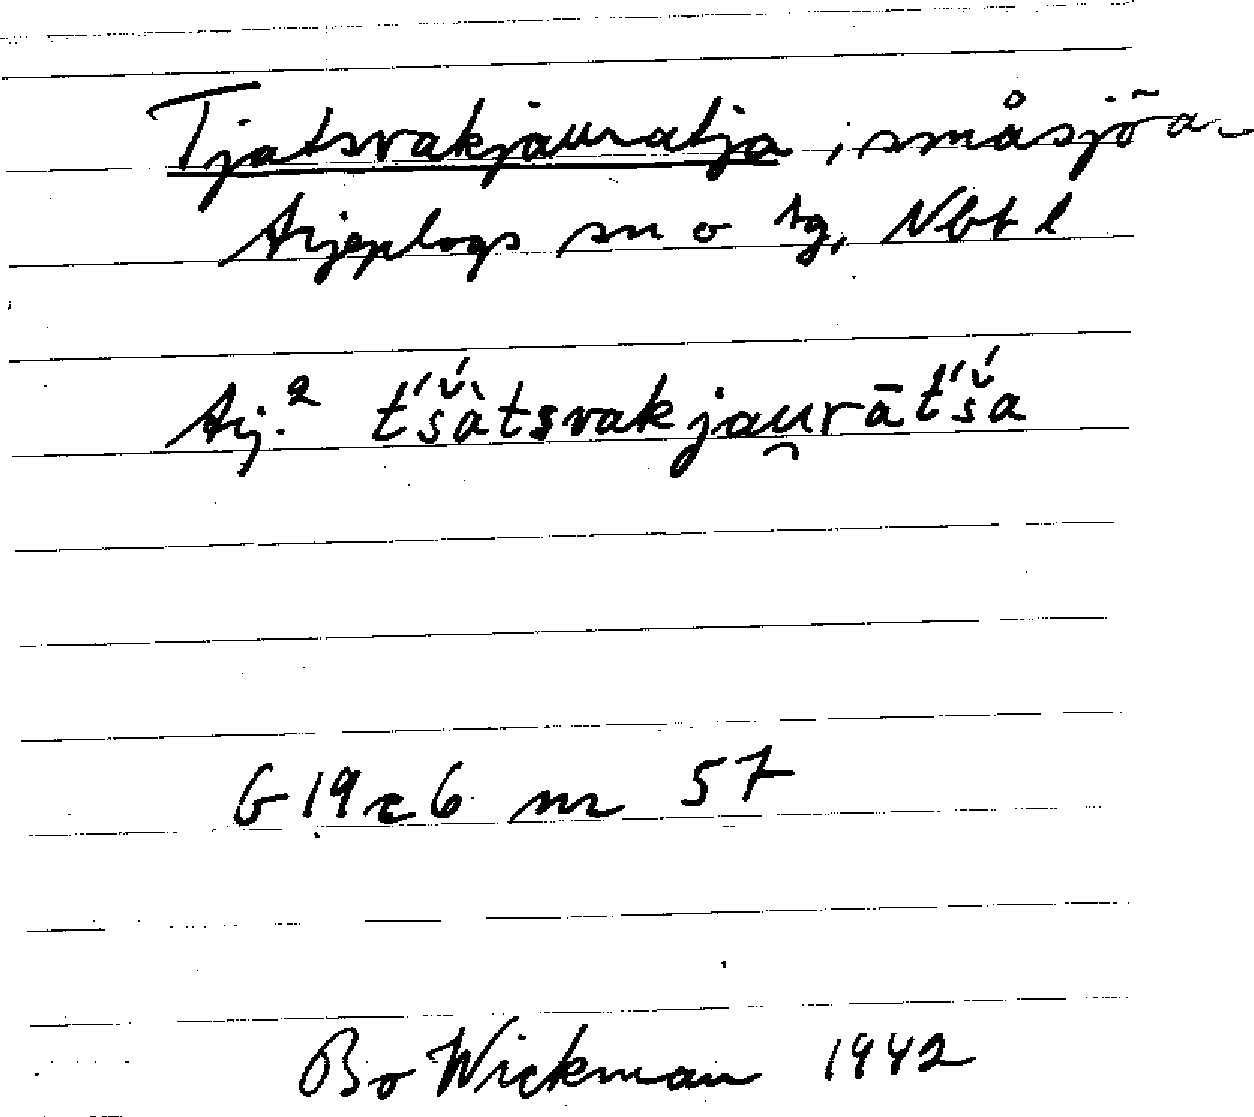 Tjatsvakjauratja, småsjöa-
Arjeplogs sn o tg, Nbt l
Arj.² t́š́àtsvakjau̯rāt́š́a
G 19 c 6 nr 57
Bo Wickman 1942